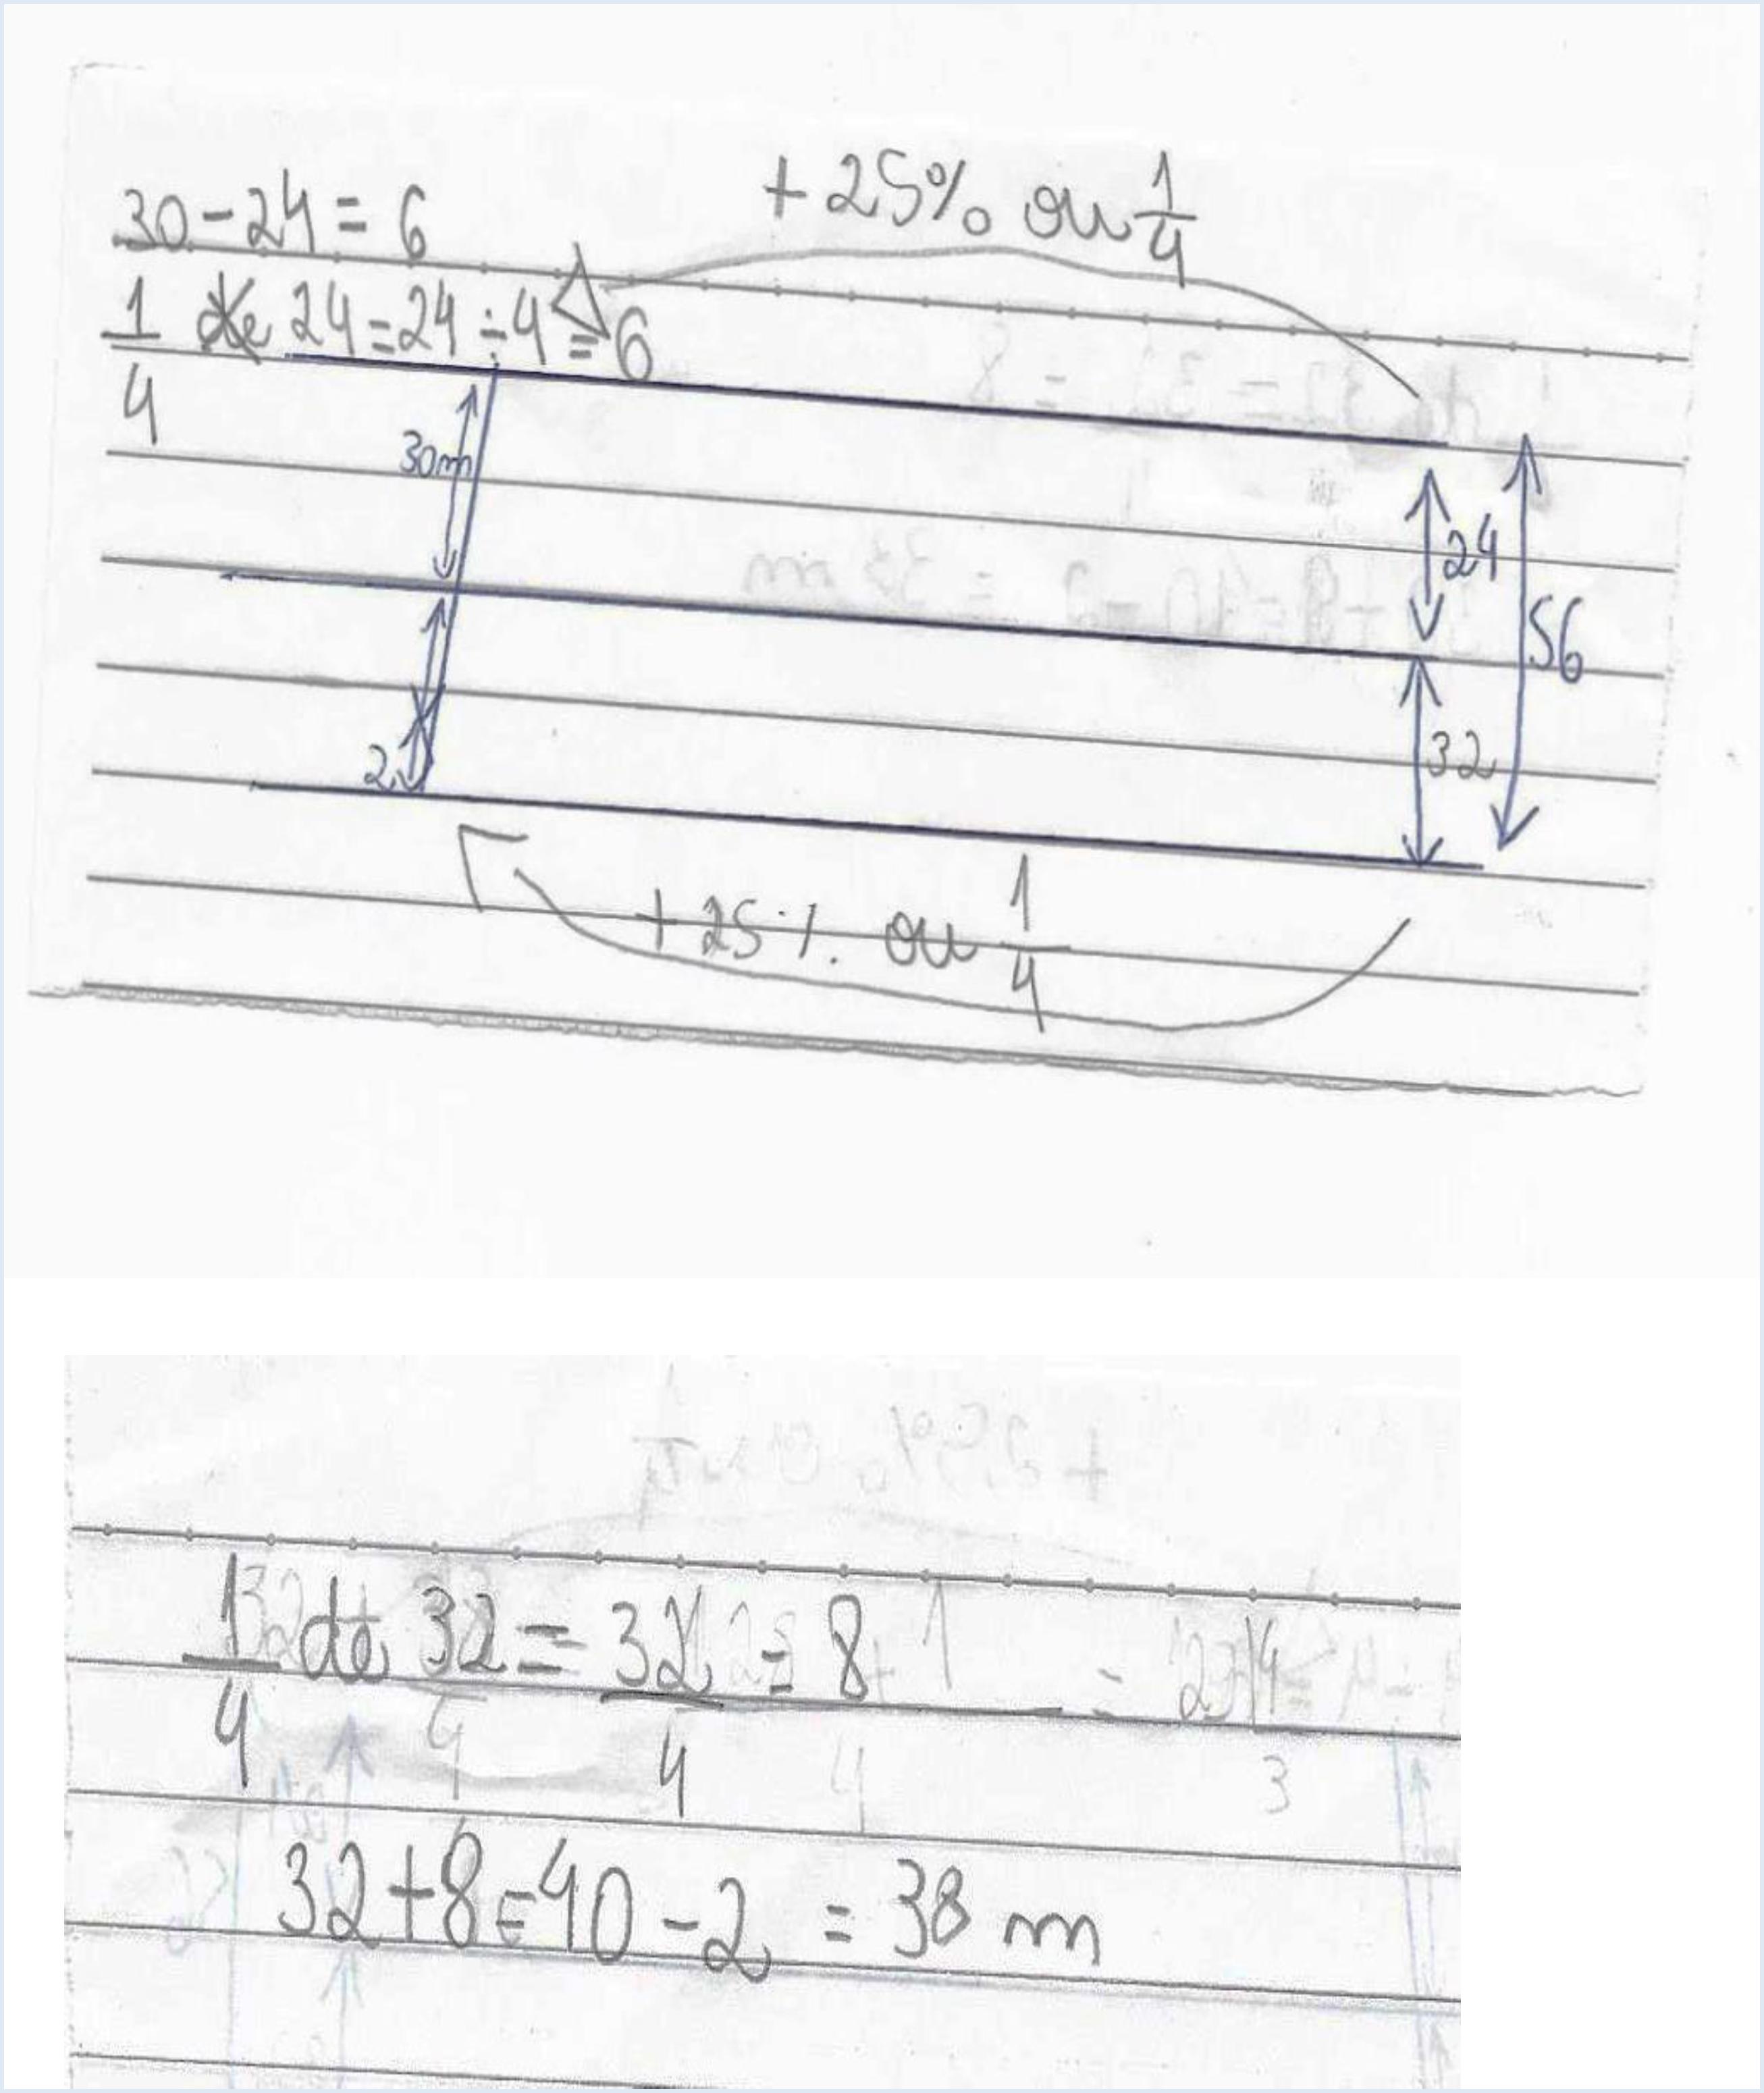 30-24 = 6
+25% ou 1/4
1/4 de 24 = 24 ÷ 4 = 6
30m
24
56
32
2
+25%. ou 1/4
1/4 de 32 = 32/4 = 8
32+8=40-2 = 38 m